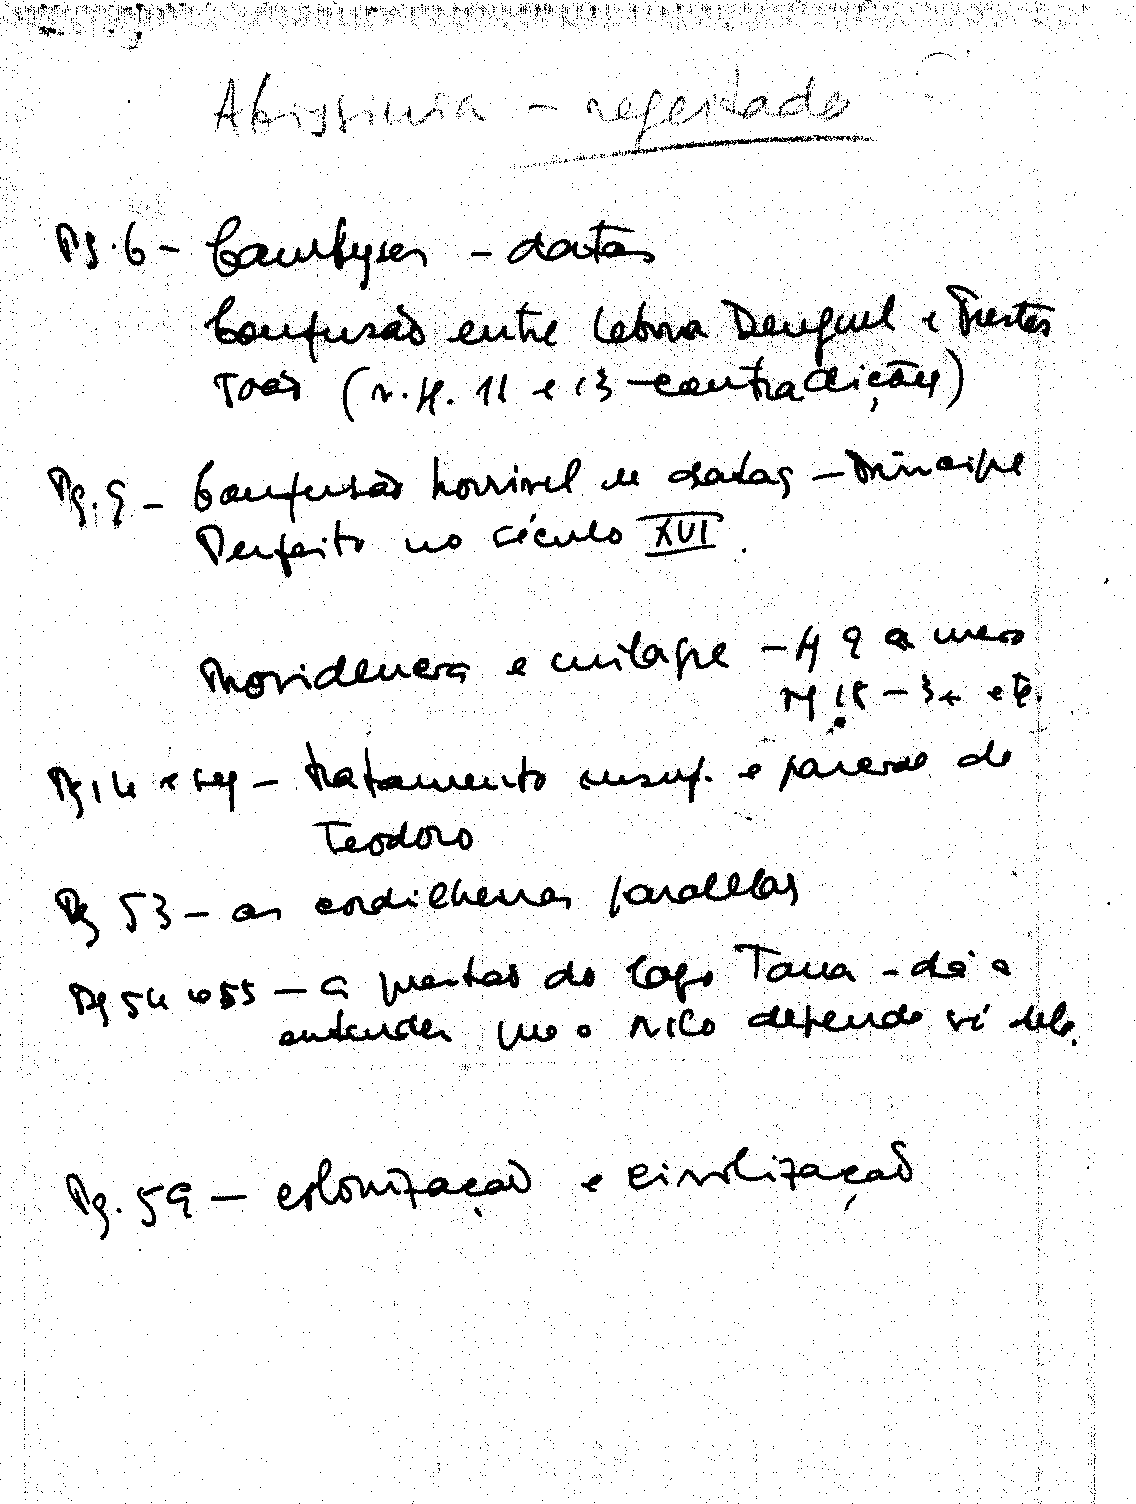 Abissinia - regeitado
Pg. 6 - Cambyses - datas
Confusão entre Lebna Denguel e Prestes
João (v. pg. 11 e 13 - contradições)
Pg. 9 - Confusão horrivel de datas - Principe
Perfeito no século XVI.
Providencia e milagre - pg 9 a meio
pg 18 - 3 etc.
Pg 14 e seg - tratamento insuf. e parcial de
Teodoro
Pg 53 - as cordilheiras paralelas
Pg 54 e 55 - a questão do Lago Tana - dá a
entender que o Nilo depende só dele.
Pg. 59 - colonização e civilização